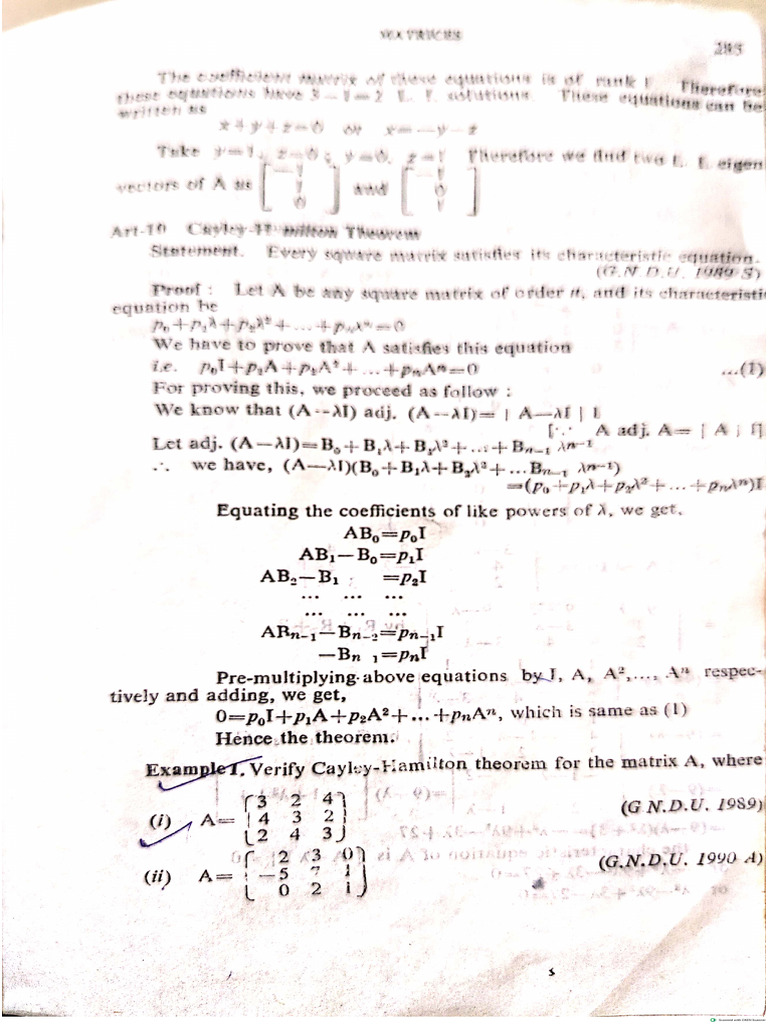 MATRICES
285
The coefficient matrix of these equations is of rank 1. Therefore
these equations have 3−1=2 L. I. solutions. These equations can be
written as
x+y+z=0 or x=−y−z
Take y=1, z=0; y=0, z=1 Therefore we find two L. I. eigen
vectors of A as [−1 1 0] and [−1 0 1]
Art-10 Cayley-Hamilton Theorem
Statement. Every square matrix satisfies its characteristic equation.
(G.N.D.U. 1989 S)
Proof : Let A be any square matrix of order n, and its characteristi
equation be
p₀+p₁λ+p₂λ²+...+pₙλⁿ=0
We have to prove that A satisfies this equation
i.e. p₀I+p₁A+p₂A²+...+pₙAⁿ=0 ...(1)
For proving this, we proceed as follow :
We know that (A−λI) adj. (A−λI)=| A−λI | I
[∵ A adj. A= | A | I]
Let adj. (A−λI)=B₀+B₁λ+B₂λ²+...+Bₙ₋₁ λⁿ⁻¹
∴ we have, (A−λI)(B₀+B₁λ+B₂λ²+...Bₙ₋₁ λⁿ⁻¹)
=(p₀+p₁λ+p₂λ²+...+pₙλⁿ)I
Equating the coefficients of like powers of λ, we get.
AB₀=p₀I
AB₁−B₀=p₁I
AB₂−B₁ =p₂I
... ... ...
... ... ...
ABₙ₋₁−Bₙ₋₂=pₙ₋₁I
−Bₙ ₁=pₙI
Pre-multiplying above equations by I, A, A²,..., Aⁿ respec-
tively and adding, we get,
0=p₀I+p₁A+p₂A²+...+pₙAⁿ, which is same as (1)
Hence the theorem.
Example 1. Verify Cayley-Hamilton theorem for the matrix A, where
3 2 4
(i) A= 4 3 2 (G N.D.U. 1989)
2 4 3
2 3 0
(ii) A= −5 7 1 (G.N.D.U. 1990 A)
0 2 1